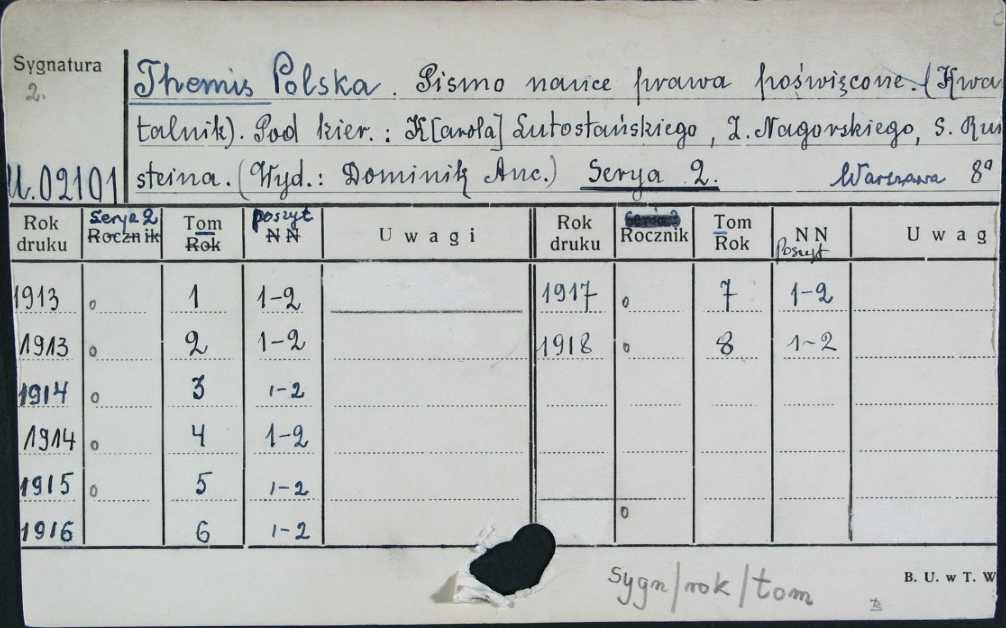 Sygnatura
2.
U.02101
Themis Polska. Pismo nauce prawa poświęcone. (Kwa
talnik). Pod kier.: K[arola] Lutostańskiego, Z. Nagórskiego, S. Run
steina. (Wyd.: Dominik Anc.) Serya 2. Warszawa 8°
Rok druku Serya 2 Rocznik Tom Rok poszyt N N Uwagi Rok druku Rocznik Tom Rok N N Poszyt Uwag
1913 o 1 1-2 1917 o 7 1-2
1913 o 2 1-2 1918 o 8 1-2
1914 o 3 1-2
1914 o 4 1-2
1915 o 5 1-2
1916 6 1-2 o
sygn/rok/tom
B. U. w T. W